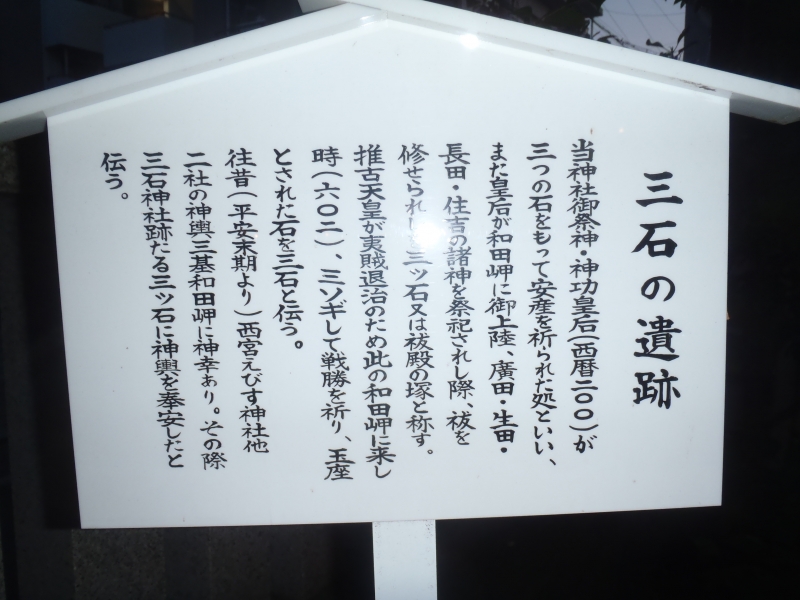 三石の遺跡
当神社御祭神・神功皇后(西暦二〇〇)が
三つの石をもって安産を祈られた処といい、
まだ皇后が和田岬に御上陸、廣田・生田・
長田・住吉の諸神を祭祀されし際、祓を
修せられし三ッ石又は祓殿の塚と称す。
推古天皇が夷賊退治のため此の和田岬に来し
時(六〇二)、ミソギして戦勝を祈り、玉座
とされた石を三石と伝う。
往昔(平安末期より)西宮えびす神社他
二社の神輿三基和田岬に神幸あり。その際
三石神社跡たる三ッ石に神輿を奉安したと
伝う。